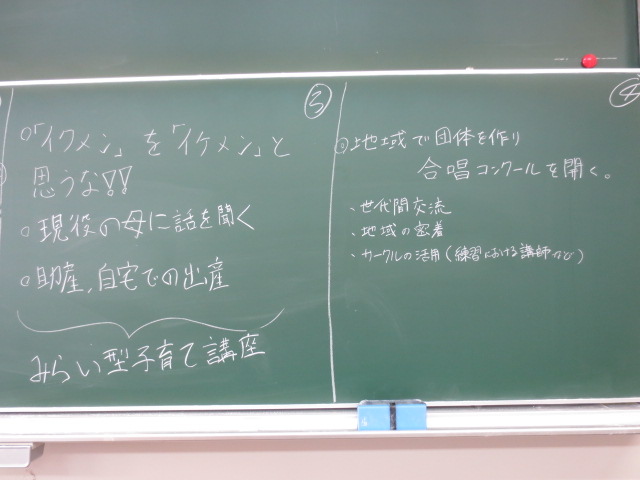 ③
○「イクメン」を「イケメン」と
思うな!!
○現役の母に話を聞く
○助産，自宅での出産
みらい型子育て講座
④
○地域で団体を作り
合唱コンクールを開く。
・世代間交流
・地域の密着
・サークルの活用(練習における講師など)